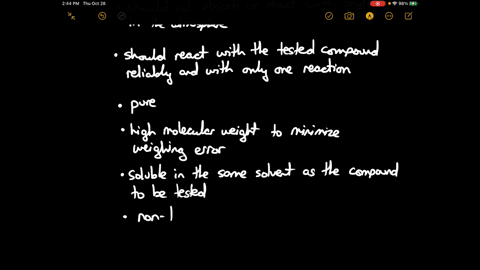 2:44 PM Thu Oct 28
98%
in the atmosphere
• should react with the tested compound
reliably and with only one reaction
• pure
• high molecular weight to minimize
weighing error
• soluble in the same solvent as the compound
to be tested
• non-